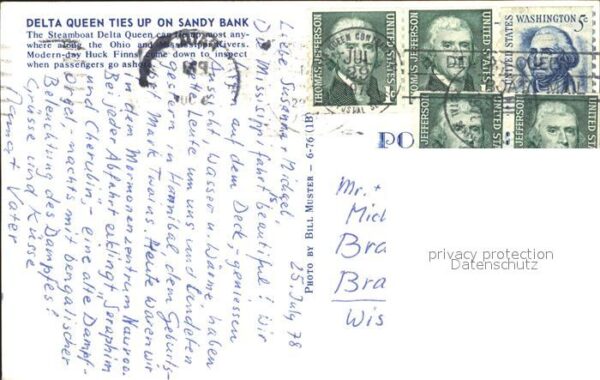 DELTA QUEEN TIES UP ON SANDY BANK
The Steamboat Delta Queen can tie up most any-
where along the Ohio and Mississippi Rivers.
Modern-day Huck Finns come down to inspect
when passengers go ashore.
25. July 78
Liebe Susanne + Michael,
Die Mississippifahrt ist beautiful! Wir
sitzen auf dem Deck, geniessen
Aussicht, Wasser u. Wärme, haben
nette Leute um uns und landeten
gestern in Hannibal, dem Geburts-
ort Mark Twains. Heute waren wir
in dem Mormonenzentrum Nauvoo.
Bei jeder Abfahrt erklingt "Seraphim
und Cherubim", - eine alte Dampf-
orgel, nachts mit bengalischer
Beleuchtung des Dampfes!
Grüsse und Küsse
Vater
PHOTO BY BILL MUSTER - 6-76 (1B)
PO
THOMAS JEFFERSON
UNITED STATES
1¢
THOMAS JEFFERSON
UNITED STATES
WASHINGTON 5c
UNITED STATES
JEFFERSON
UNITED STATES
JEFFERSON
JUL
29
Mr. +
Mich
Bra
Bra
Wis
privacy protection
Datenschutz